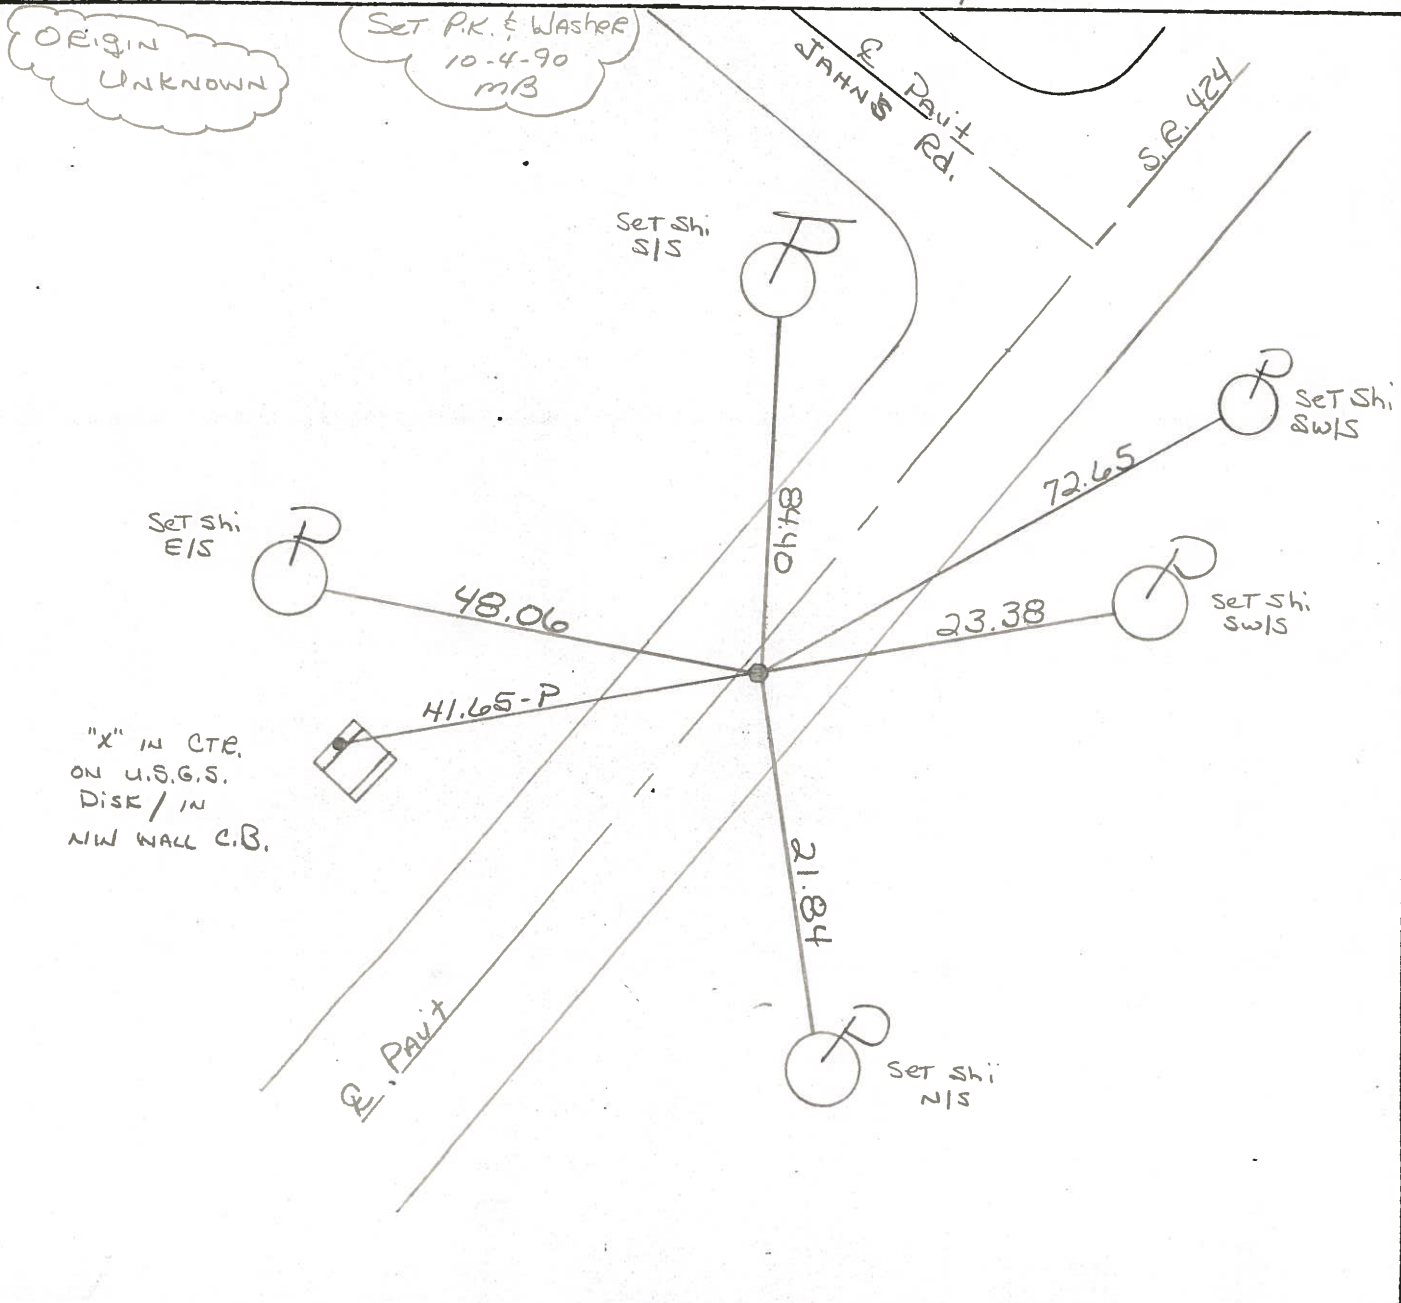 ORIGIN
UNKNOWN
SET P.K. & WASHER
10-4-90
MB
℄ PAV'T
JAHN'S Rd.
S.R. 424
SET Shi
S/S
SET Shi
SW/S
72.65
84.40
SET Shi
E/S
48.06
23.38
SET Shi
SW/S
41.65-P
"X" IN CTR.
ON U.S.G.S.
DISK / IN
NW WALL C.B.
21.84
℄ PAV'T
SET Shi
N/S